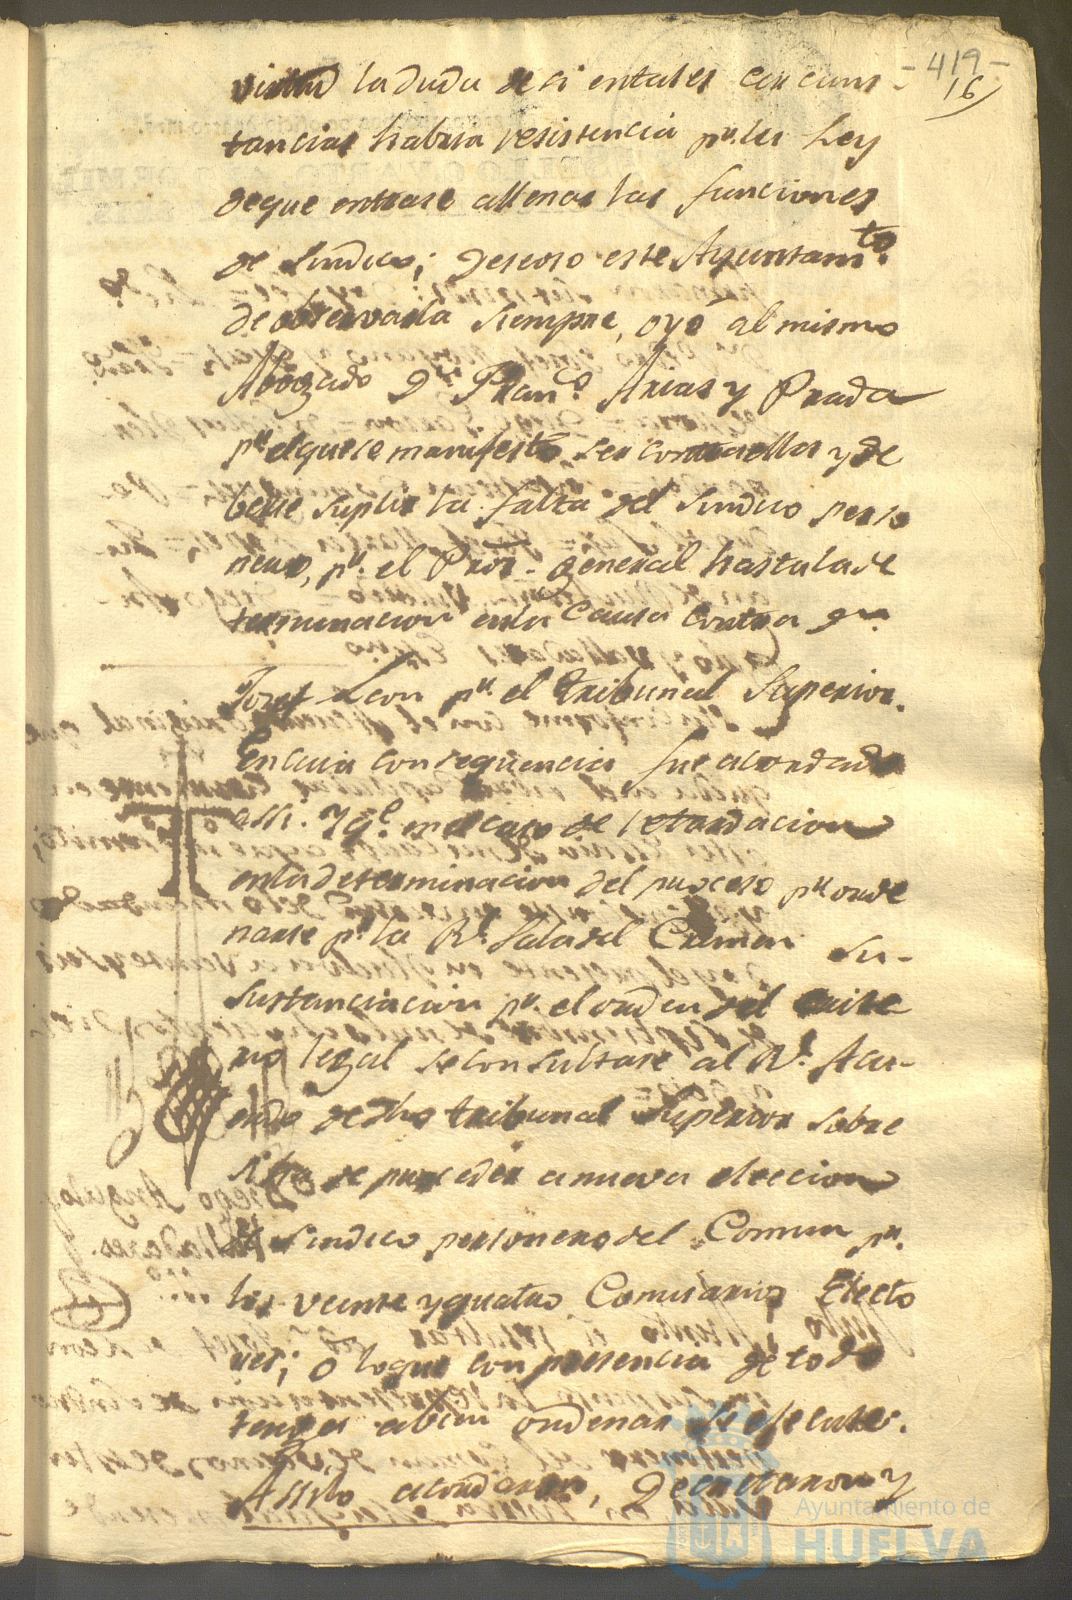 -419-
16
virtud la duda de si entales circuns-
tancias habria resistencia pr. las Ley
deque entrase allenar las funciones
de Sindico; deseoso este Ayuntamto.
de observarla siempre, oyó al mismo
Abogado Dn. Franco. Arias y Prada
pr. elquese manifestó, ser contra ellas y de
berse suplir la falta del Sindico perso
nero, pr. el Pror. general hasta la de
terminacion enla Causa contra Dn.
Josef Leon pr. el tribunal Superior.
En cuia consequencia fue acordado
assi. Y qe. en el caso de retardacion
enla determinacion del proceso pr. orde
narse pr. la Rl. Sala del Crimen su
sustanciacion pr. el orden del
rio legal se consultase al Rl. Acu-
erdo de dho tribunal Superior sobre
si ha de proceder a nueva eleccion
de Sindico personero del Comun pr.
los veinte y quatro Comisarios Electo
res; o loque con presencia de todo
tenga abien ordenar se execute.
Assilo acordaron, Decretaron y
Ayuntamiento de
HUELVA